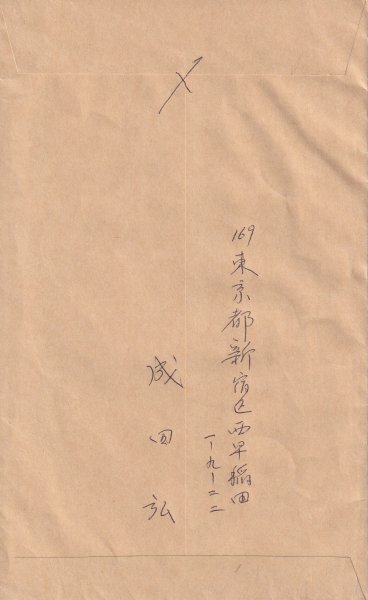 〆
169 東京都新宿区西早稲田
一ー九ー二二
成田弘